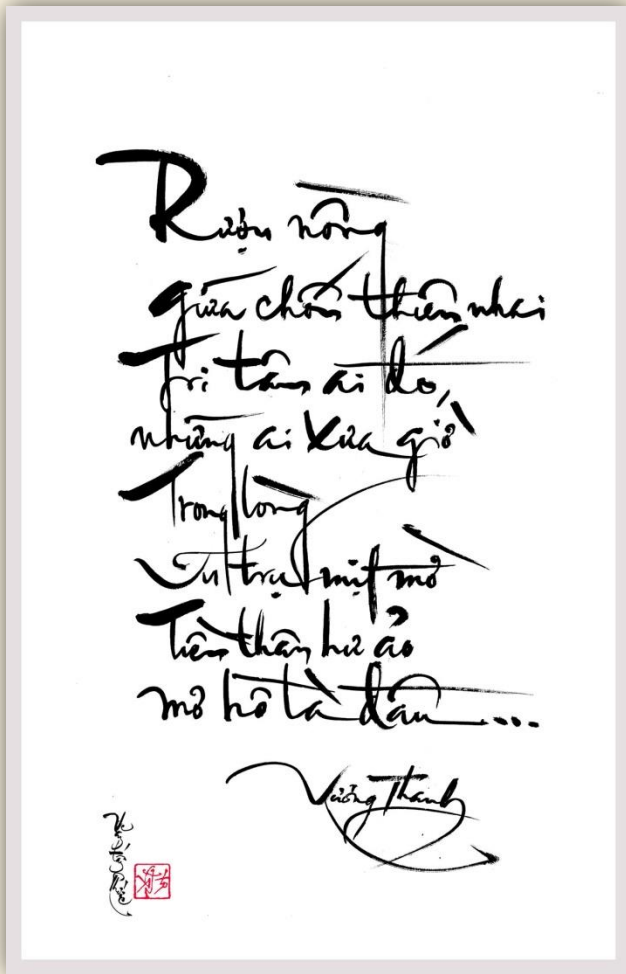 Rượu nồng
giữa chốn thiên nhai
Tri tâm ai đó,
những ai xưa giờ
Trong lòng
Vũ trụ mịt mờ
Tiền thân hư ảo
mơ hồ ta đâu ...
Vương Thanh